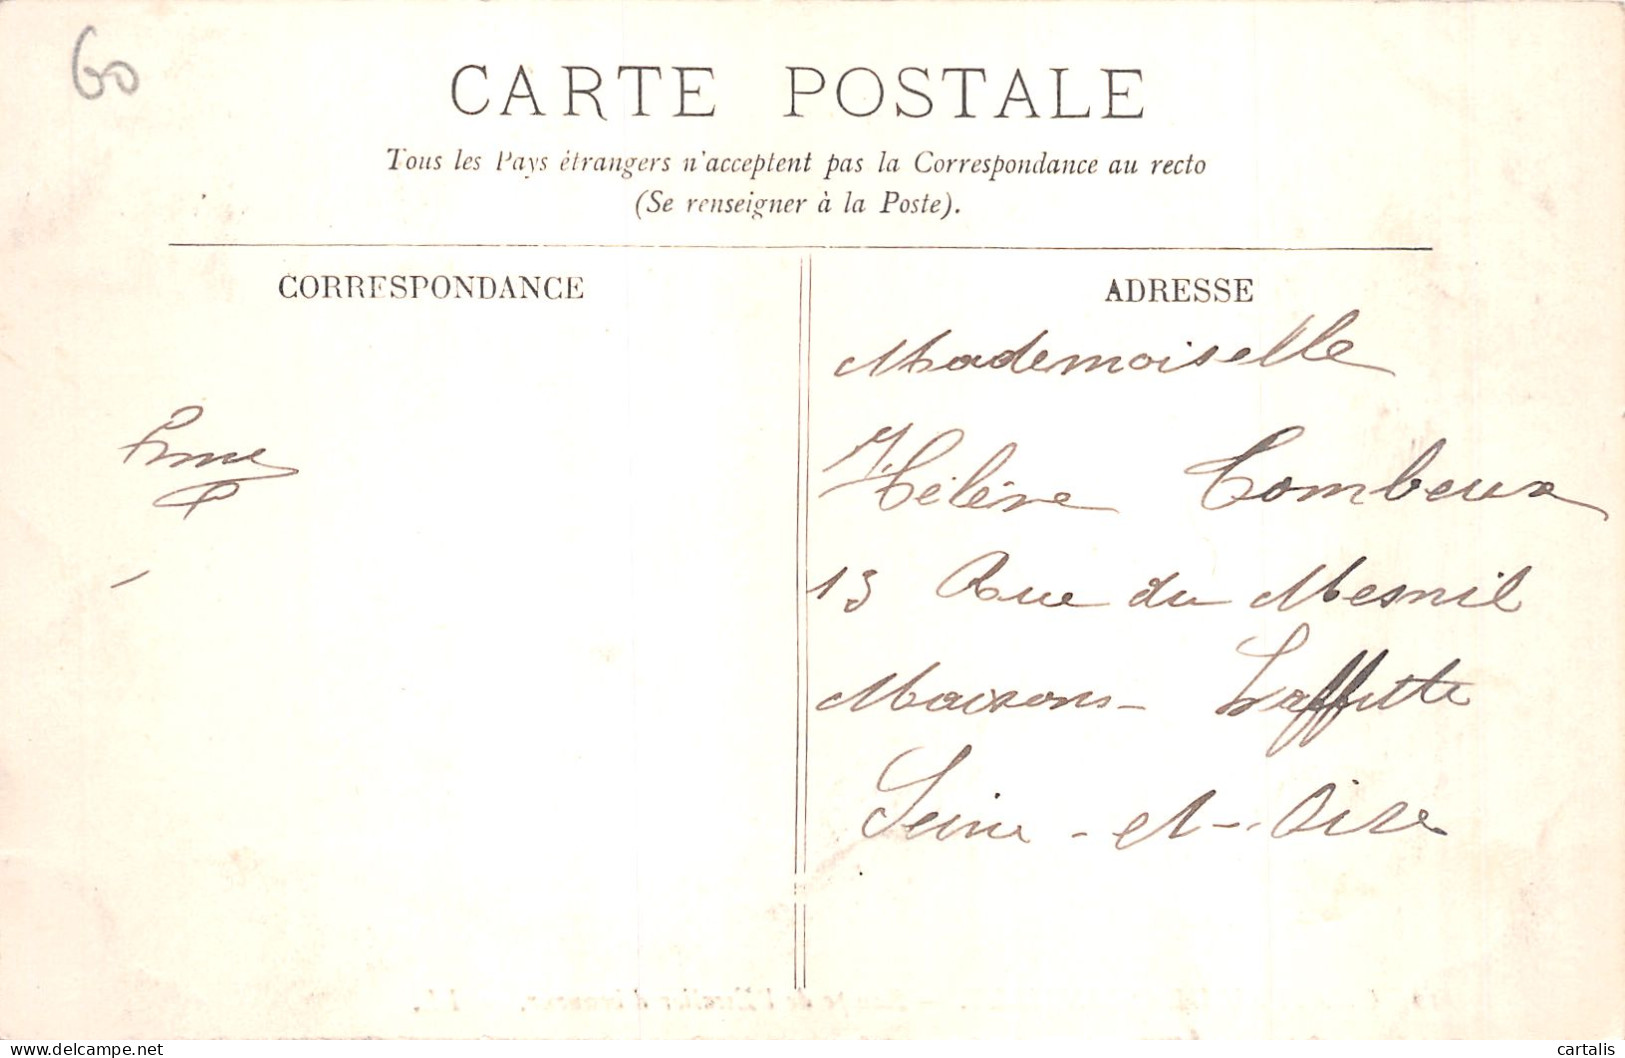 60
CARTE POSTALE
Tous les Pays étrangers n'acceptent pas la Correspondance au recto
(Se renseigner à la Poste).
CORRESPONDANCE
ADRESSE
Mademoiselle
Hélène Combeux
13 Rue du Mesnil
Maisons-Laffitte
Seine-et-Oise
cartalis